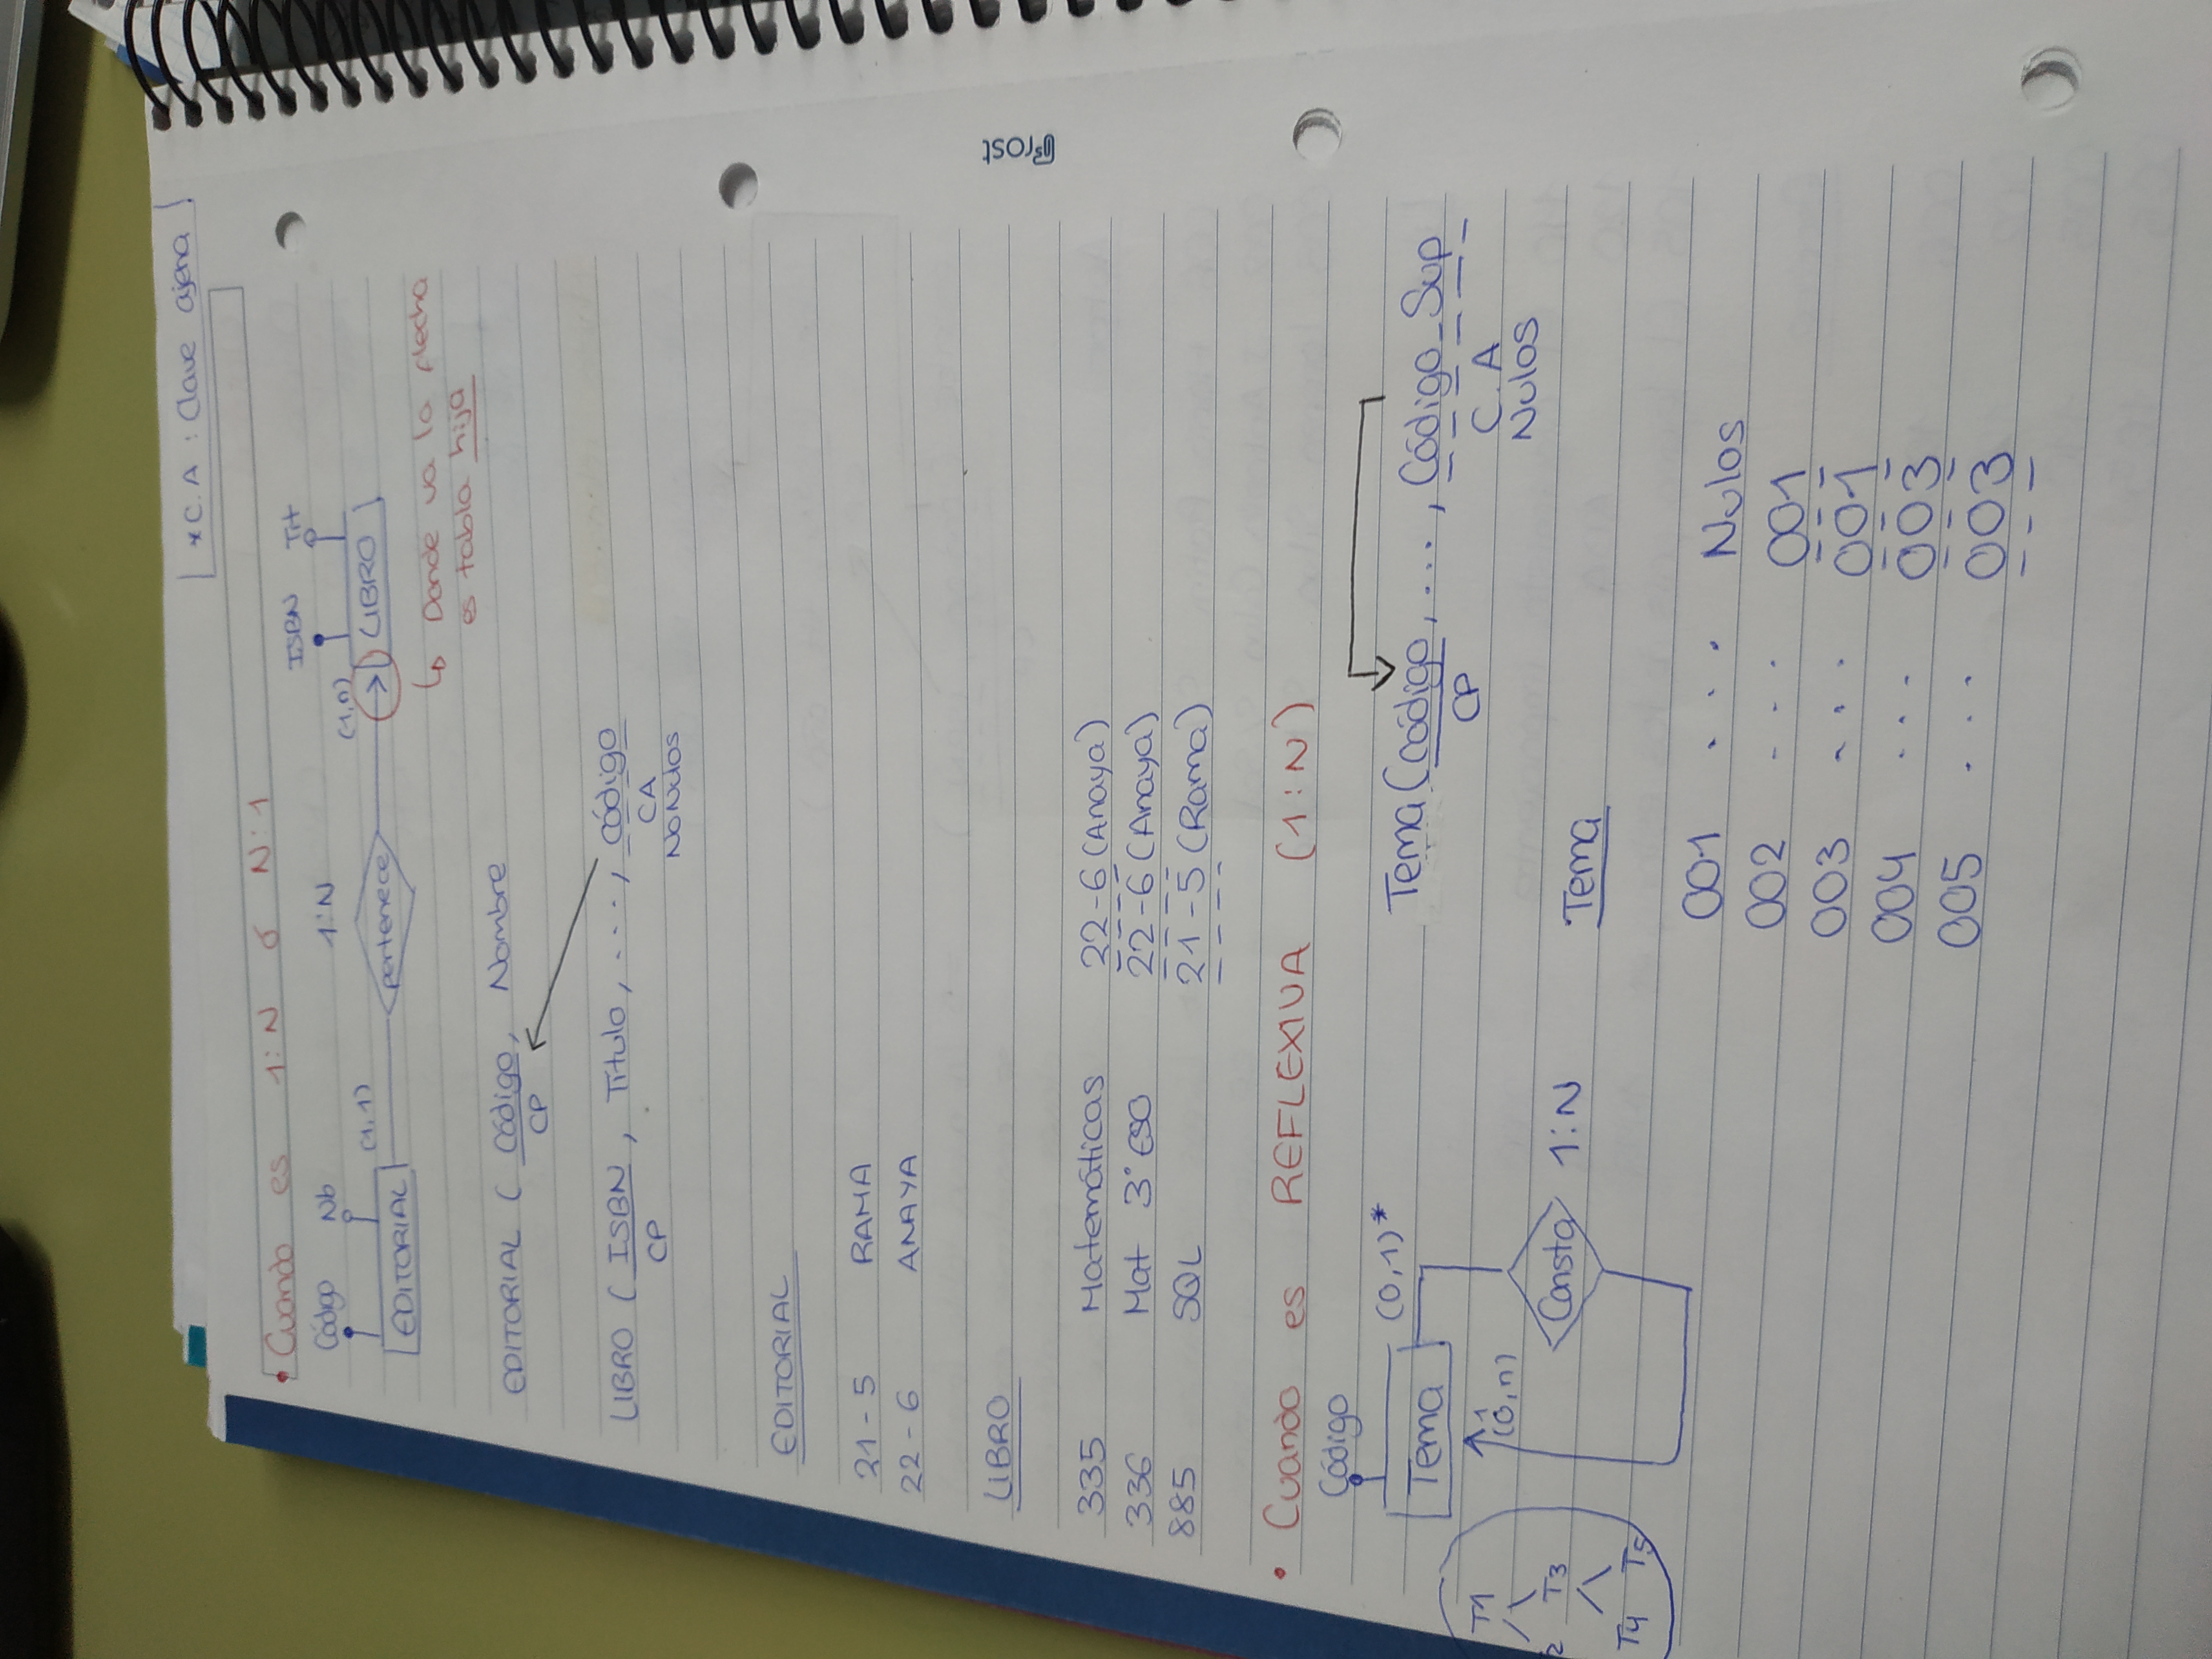 *C.A : Clave ajena
• Cuando es 1:N ó N:1
Código Nb 1:N ISBN Tit
(1,1) (1,n)
EDITORIAL pertenece LIBRO
↳ Donde va la flecha
es tabla hija
EDITORIAL ( Código, Nombre
CP
LIBRO ( ISBN, Título, ..., código
CP CA
NoNulos
EDITORIAL
21-5 RAMA
22-6 ANAYA
LIBRO
335 Matemáticas 22-6 (Anaya)
336 Mat 3º ESO 22-6 (Anaya)
885 SQL 21-5 (Rama)
• Cuando es REFLEXIVA (1:N)
Código
(0,1)*
Tema
Tema (código, ..., Código_Sup
CP C.A
Nulos
T1
1
(0,n)
2 T3
Consta 1:N
T4 T5
Tema
001 ... Nulos
002 ... 001
003 ... 001
004 ... 003
005 ... 003
Frost